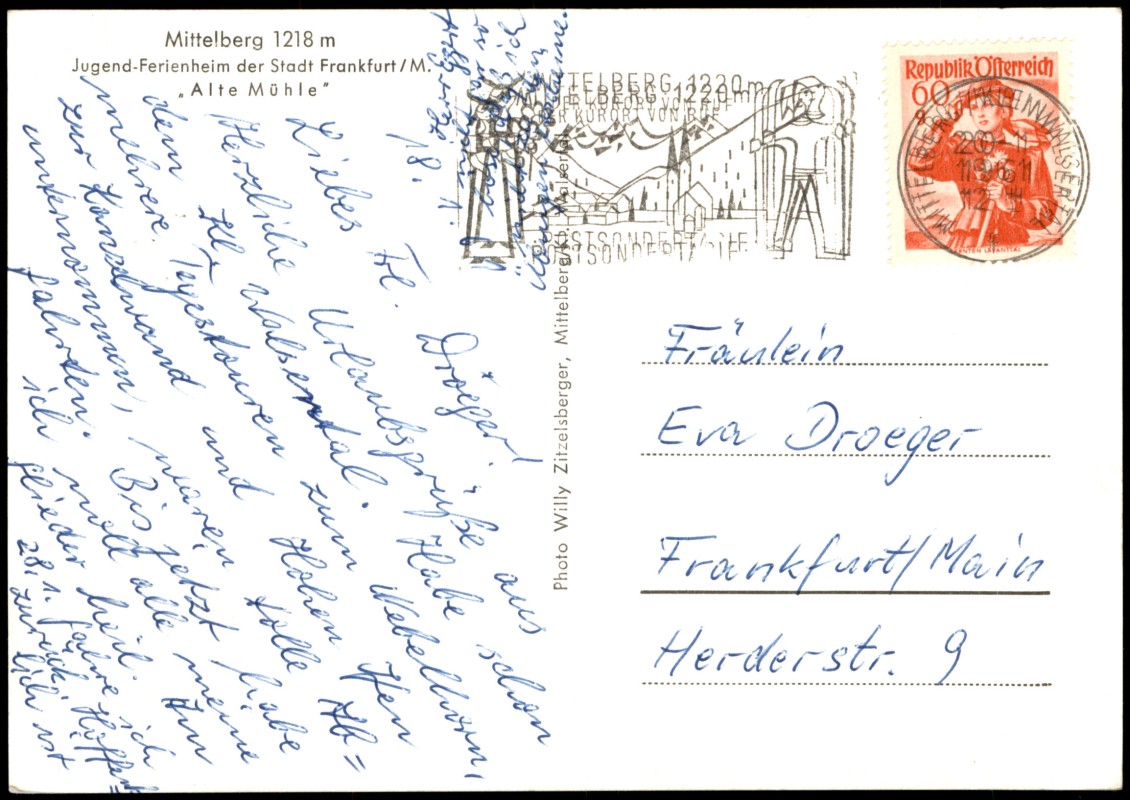 Mittelberg 1218 m
Jugend-Ferienheim der Stadt Frankfurt/M.
"Alte Mühle"
18. 1.
Liebes Frl. Dröger!
Herzliche Urlaubsgrüße aus
dem Kl. Walsertal. Habe schon
mehrere Tagestouren zum Nebelhorn,
zur Kanzelwand und Hohen Ifen
unternommen, waren tolle Ab=
fahrten. Bis jetzt habe
ich noch alle meine
glieder heil. Am
28. 1. fahre ich
zurück. Hoffent=
lich ist
Photo Willy Zitzelsberger, Mittelberg/Kl. Walsertal
MITTELBERG 1220 m
DER KURORT VON RUF
POSTSONDERTARIF
Republik Österreich
60
MITTELBERG KLEINWALSERTAL
KÄRNTEN LAVANTTAL
Fräulein
Eva Droeger
Frankfurt/Main
Herderstr. 9